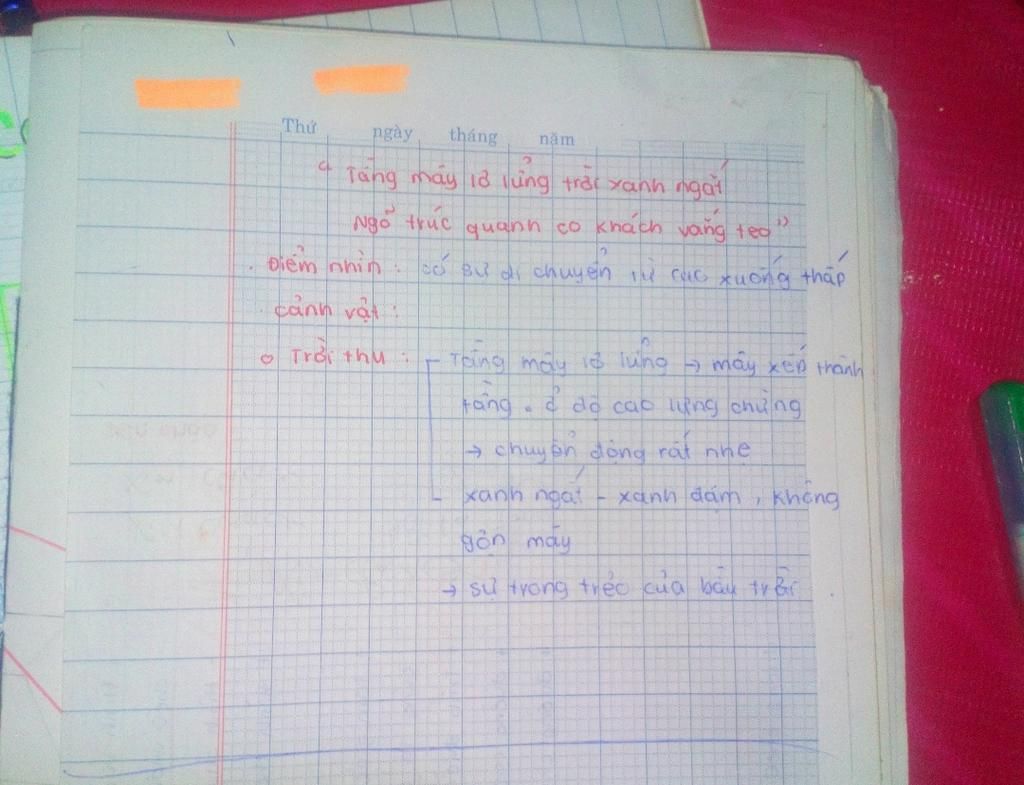 Thứ ngày tháng năm
“ Tầng mây lơ lửng trời xanh ngắt
Ngõ trúc quanh co khách vắng teo”
. Điểm nhìn : có sự di chuyển từ cao xuống thấp
Cảnh vật :
o Trời thu : - Tầng mây lơ lửng → mây xếp thành
tầng . ở độ cao lưng chừng
→ chuyển động rất nhẹ
- xanh ngắt - xanh đậm , không
gợn mây
→ sự trong trẻo của bầu trời .